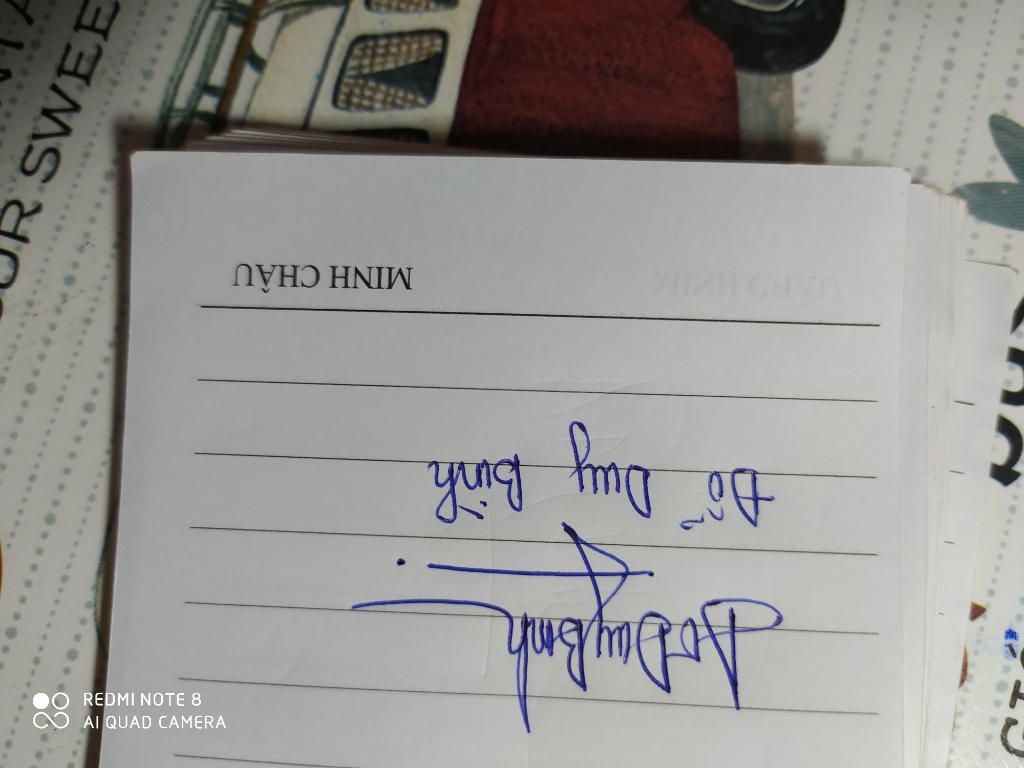 DoDuyBinh
Đỗ Duy Bình
MINH CHÂU
OUR SWEE
REDMI NOTE 8
AI QUAD CAMERA